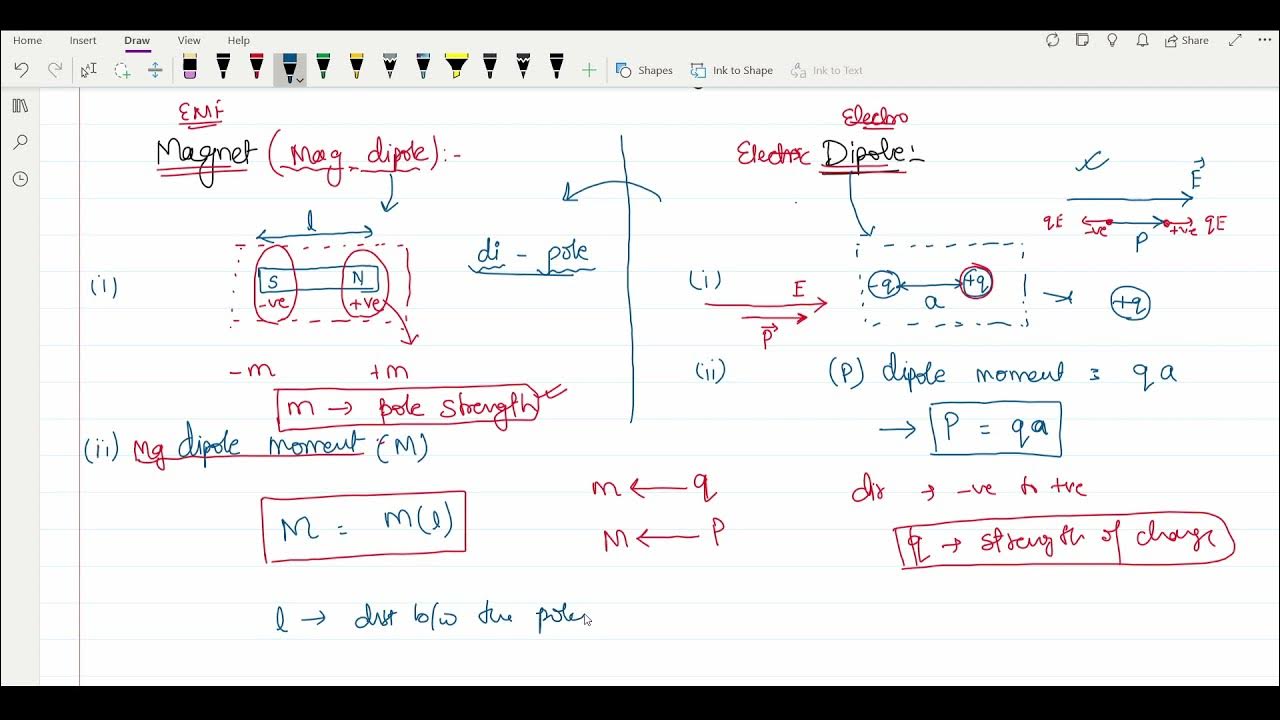 Home Insert Draw View Help
Share
Shapes Ink to Shape Ink to Text
EMF
Magnet (Mag dipole):-
l
S N
-ve +ve
(i)
-m +m
m → pole strength
(ii) Mg dipole moment (M)
M = m(l)
l → dist b/w the poles
di - pole
m ← q
M ← P
Electro
Electric Dipole:-
E
qE -ve P +ve qE
(i)
E
P
-q a +q
→ +q
(ii) (P) dipole moment = qa
→ P = qa
dir → -ve to +ve
q → strength of charge